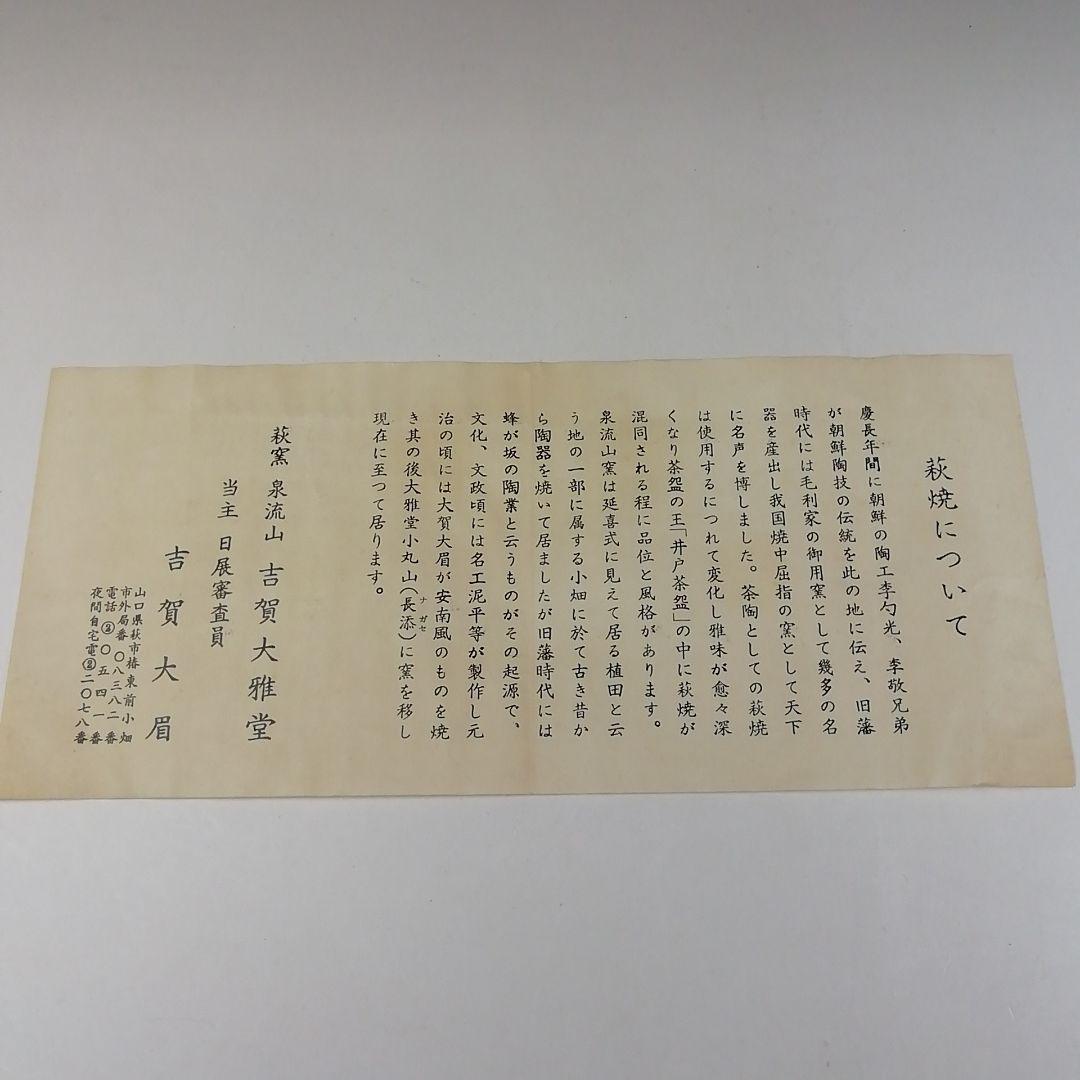 萩焼について
慶長年間に朝鮮の陶工李勺光、李敬兄弟
が朝鮮陶技の伝統を此の地に伝え、旧藩
時代には毛利家の御用窯として幾多の名
器を産出し我国焼中屈指の窯として天下
に名声を博しました。茶陶としての萩焼
は使用するにつれて変化し雅味が愈々深
くなり茶盌の王「井戸茶盌」の中に萩焼が
混同される程に品位と風格があります。
泉流山窯は延喜式に見えて居る植田と云
う地の一部に属する小畑に於て古き昔か
ら陶器を焼いて居ましたが旧藩時代には
蜂が坂の陶業と云うものがその起源で、
文化、文政頃には名工泥平等が製作し元
治の頃には大賀大眉が安南風のものを焼
き其の後大雅堂小丸山(長添)に窯を移し
ナガセ
現在に至つて居ります。
萩窯 泉流山 吉賀大雅堂
当主 日展審査員
吉賀大眉
山口県萩市椿東前小畑
市外局番〇八三八二番
電話②〇五四一番
夜間自宅電②二〇七八番